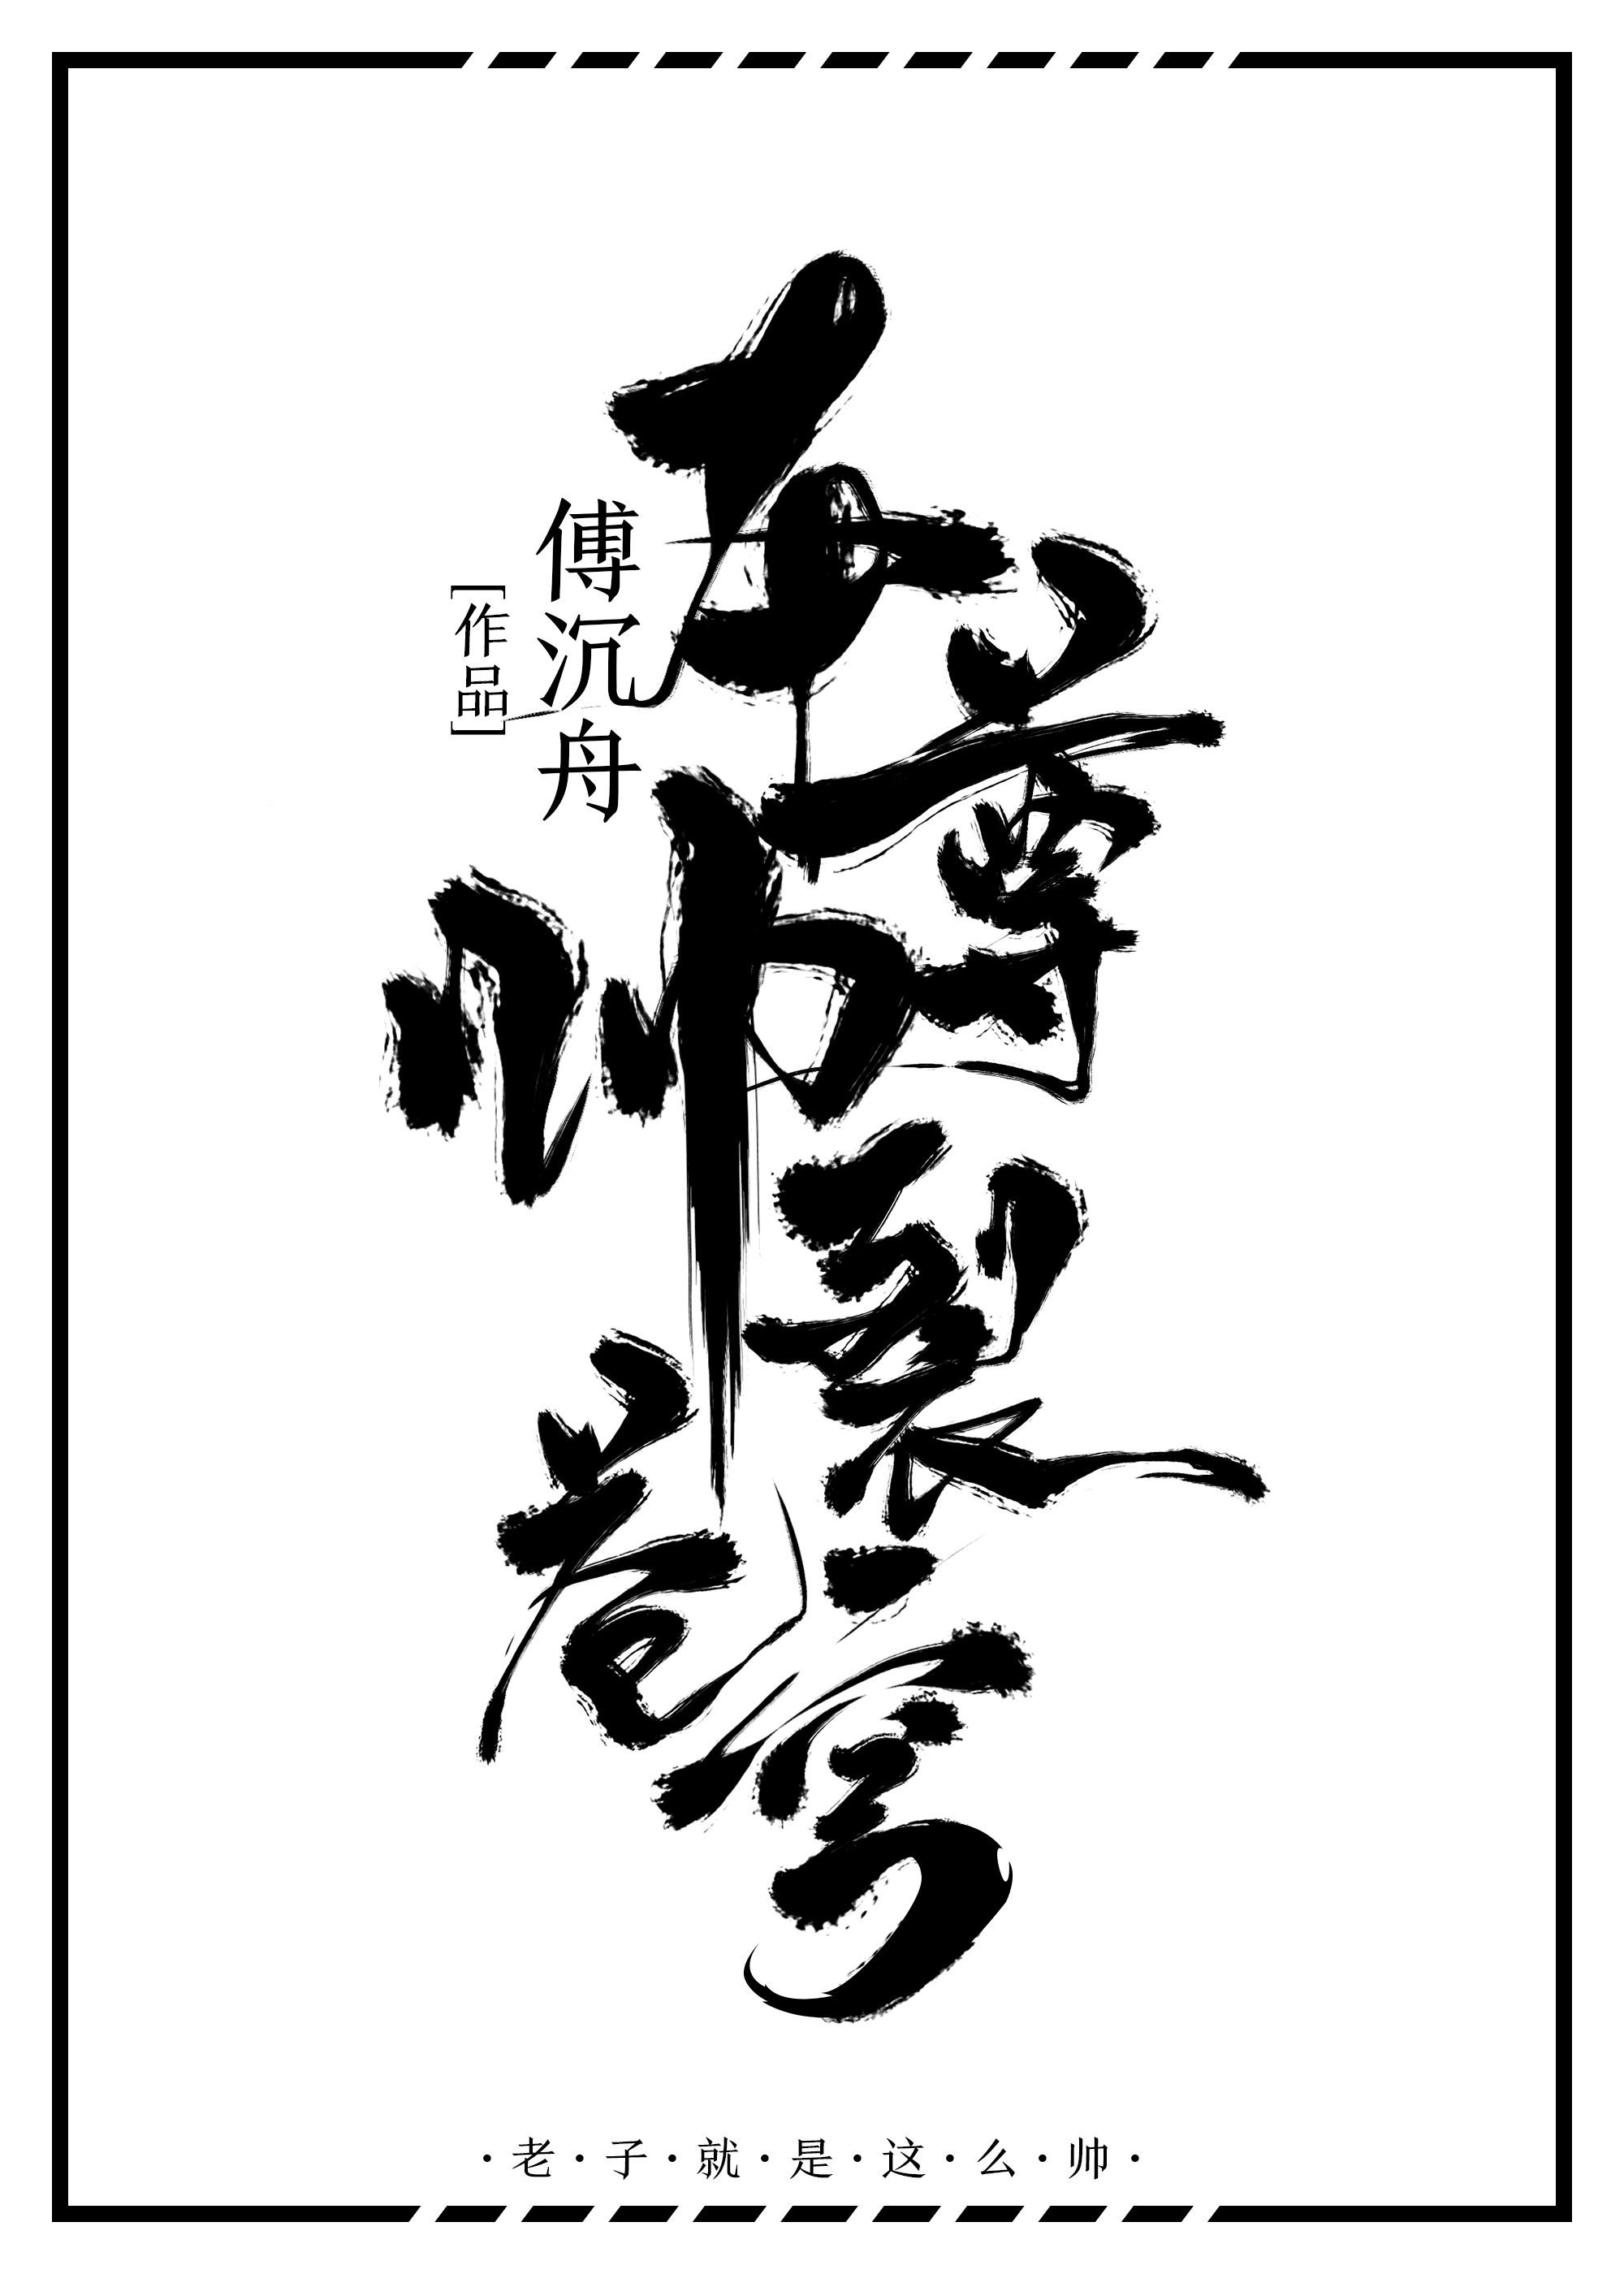 本尊帅裂苍穹
傅沉舟
[作品]
·老·子·就·是·这·么·帅·